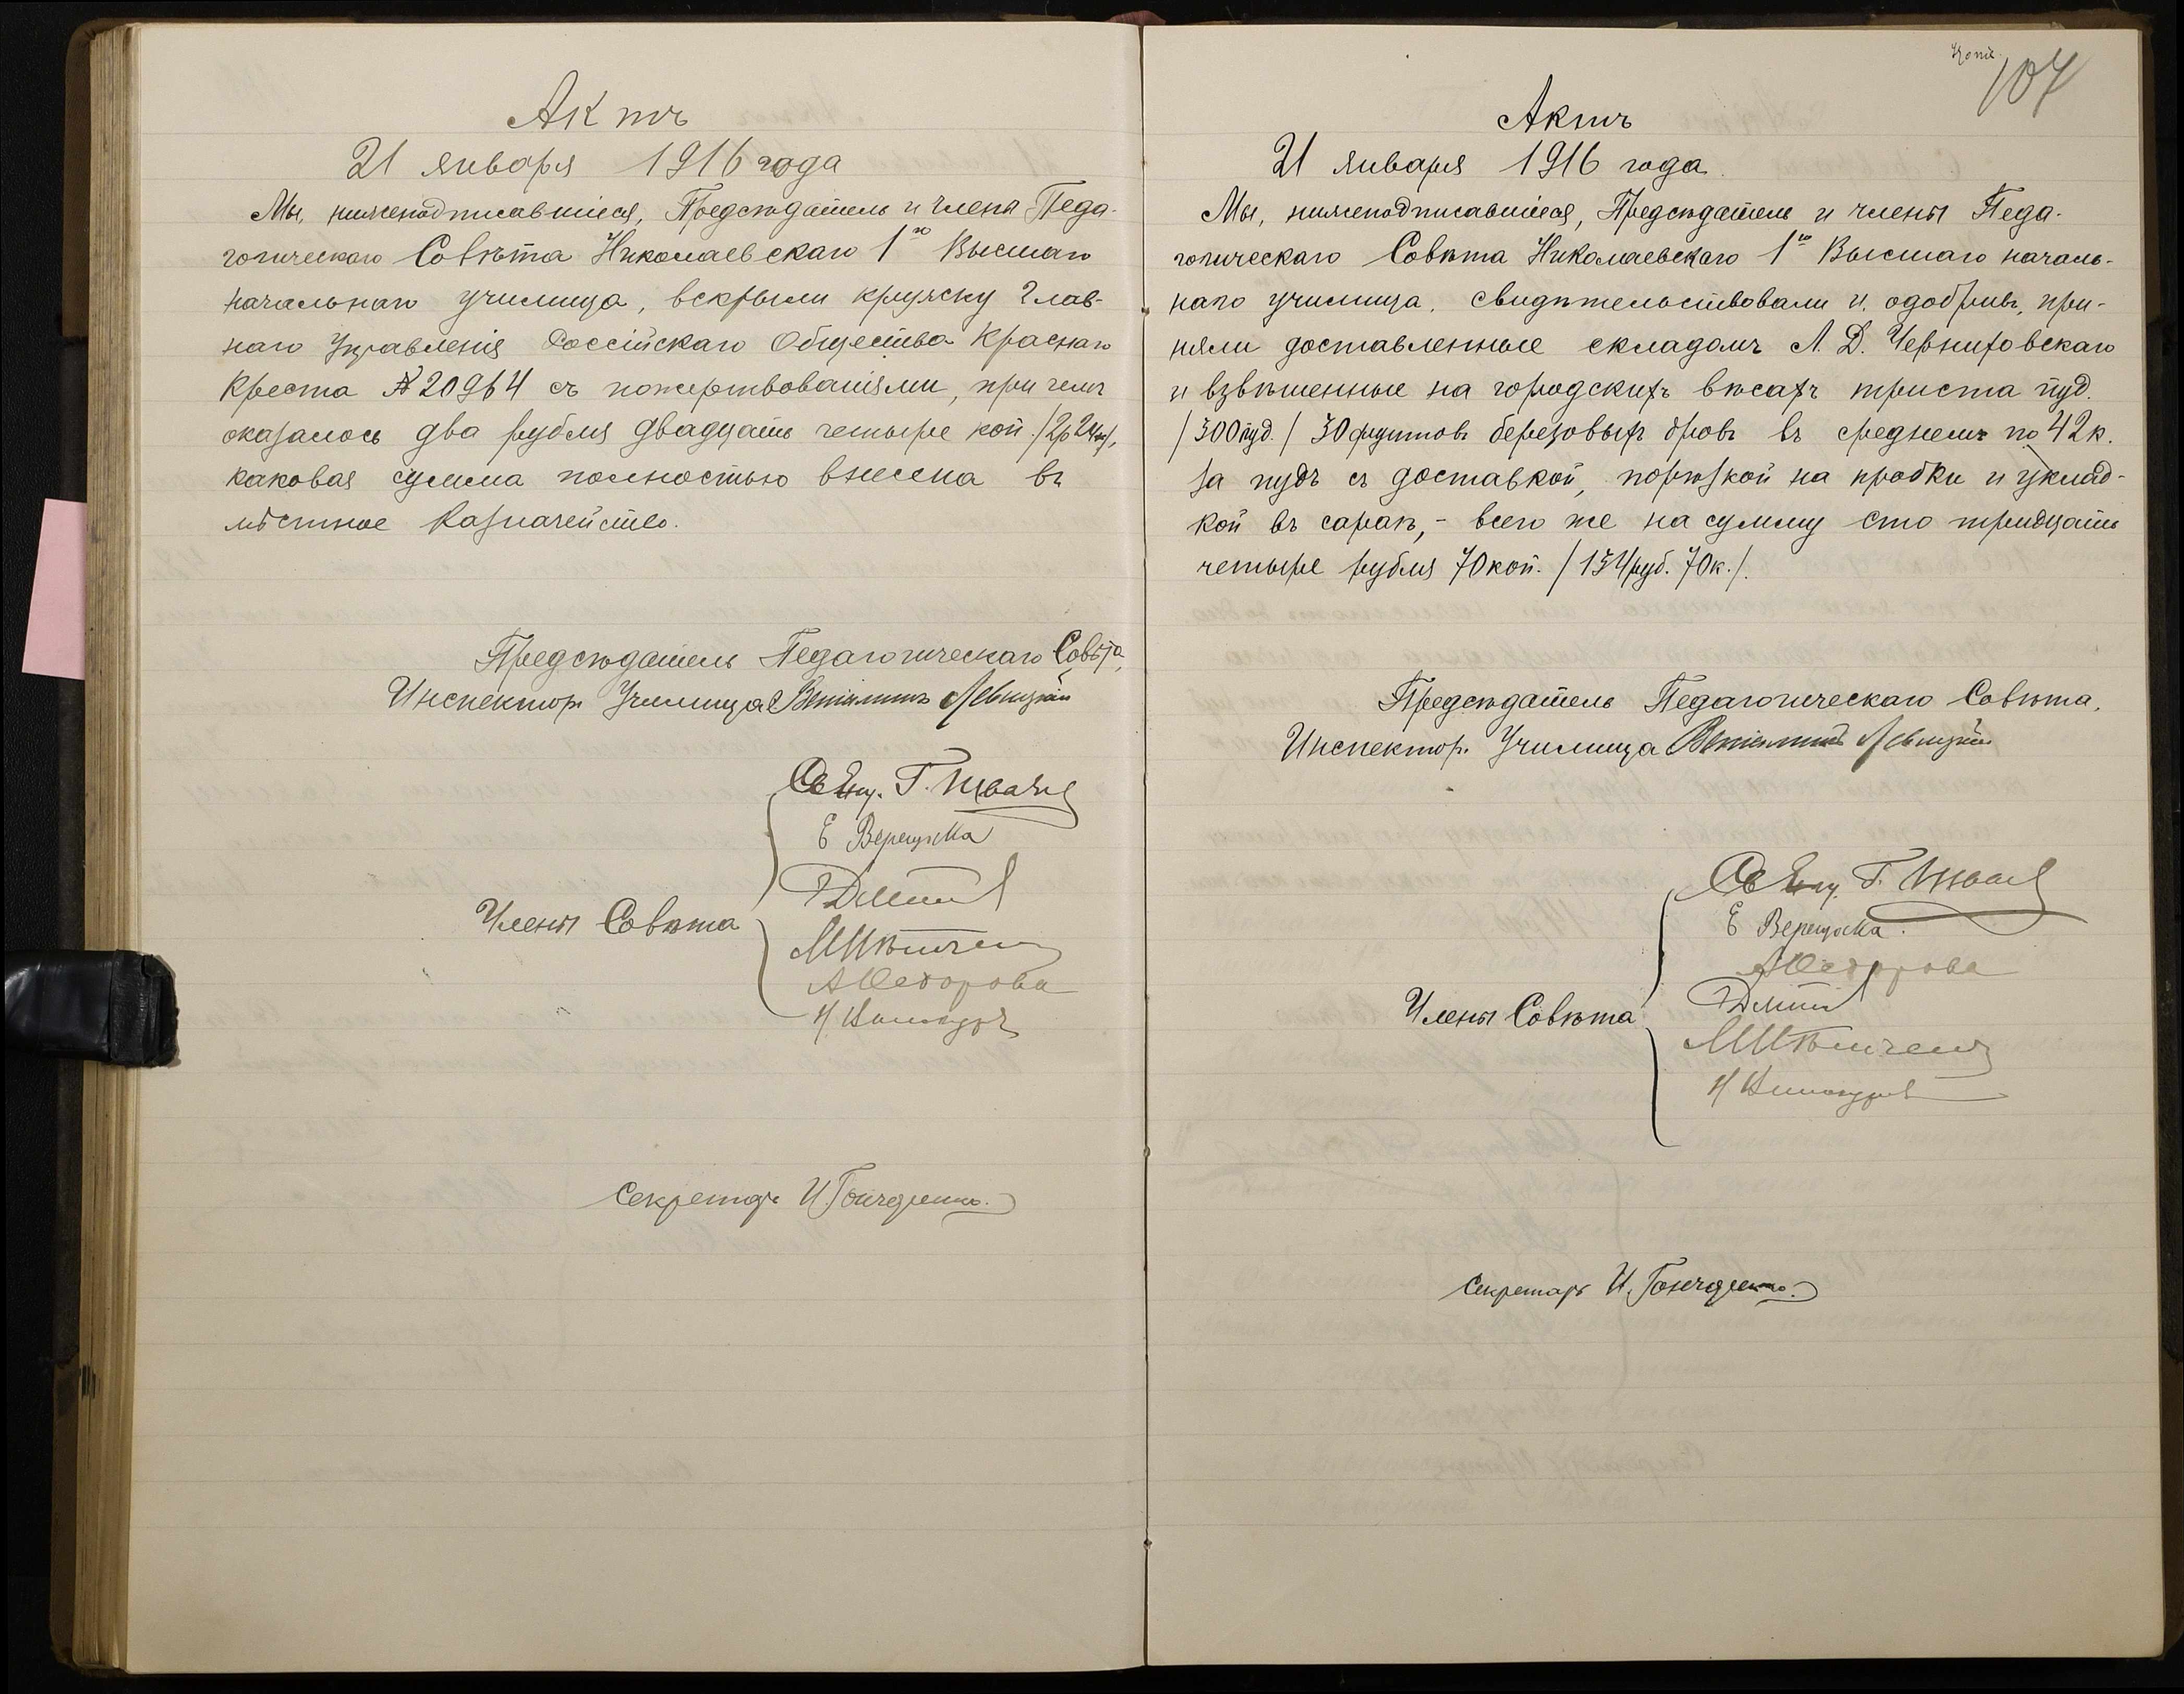 Актъ
21 января 1916 года
Мы, нижеподписавшіеся, Предсѣдатель и члены Педа-
гогическаго Совѣта Николаевскаго 1го Высшаго
начальнаго училища, вскрыли кружку Глав-
наго Управленія Россійскаго Общества Краснаго
Креста № 20964 съ пожертвованіями, при чемъ
оказалось два рубля двадцать четыре коп. /2р24к/,
каковая сумма полностью внесена въ
мѣстное Казначейство.
Предсѣдатель Педагогическаго Совѣта,
Инспекторъ Училища Левицкій
Свящ. Г.
Е
Члены Совѣта
А Ѳедорова
Секретарь И. Гончаренко.
107
Актъ
21 января 1916 года.
Мы, нижеподписавшіеся, Предсѣдатель и члены Педа-
гогическаго Совѣта Николаевскаго 1го Высшаго началь-
наго училища, свидѣтельствовали и, одобривъ, при-
няли доставленные складомъ Л. Д. Черниховскаго
и взвѣшенные на городскихъ вѣсахъ триста пуд.
/300 пуд./ 30 фунтовъ березовыхъ дровъ въ среднемъ по 42 к.
за пудъ съ доставкой, порѣзкой на пробки и уклад-
кой въ сараѣ, - всего же на сумму сто тридцать
четыре рубля 70 коп. /134 руб. 70 к./.
Предсѣдатель Педагогическаго Совѣта,
Инспекторъ Училища Левицкій
Свящ. Г.
Е
А Ѳедорова
Члены Совѣта
Секретарь И. Гончаренко.